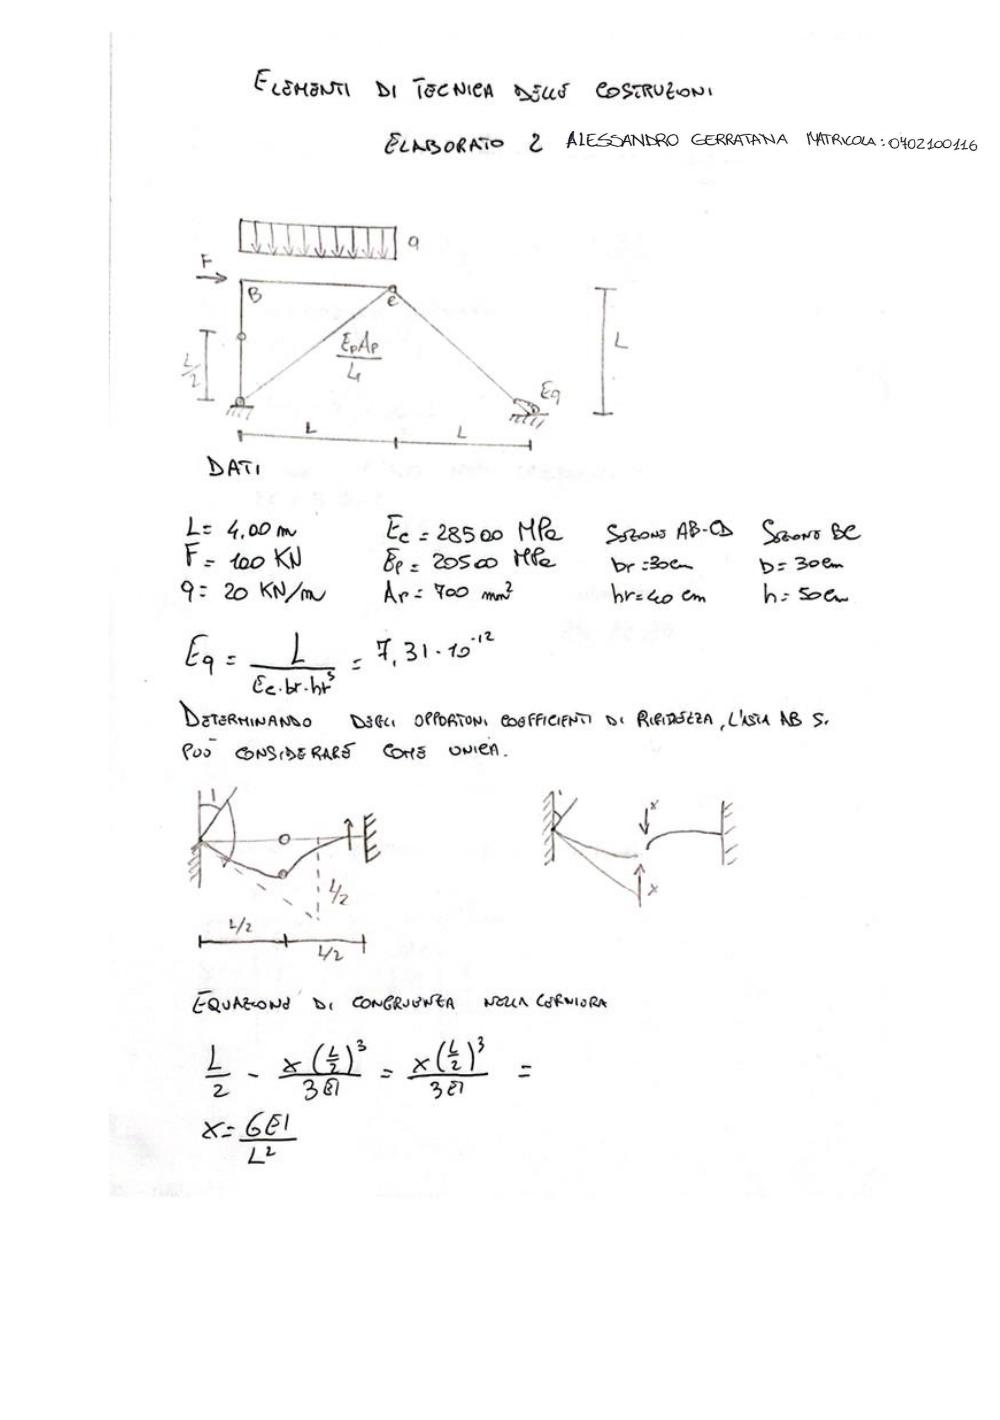 ELEMENTI DI TECNICA DELLE COSTRUZIONI
ELABORATO 2 ALESSANDRO GERRATANA MATRICOLA: 0402100116
q
F
B
C
L/2
EpAp/4
L
Eq
L L
DATI
L= 4,00 m Ec = 28500 MPa SEZIONE AB-CD SEZIONE BC
F= 100 KN Ep = 20500 MPa br=30cm b= 30cm
q= 20 KN/m Ap= 700 mm² hr=40 cm h= 50cm
Eq = L/(Ec·br·hr³) = 7,31·10⁻¹²
DETERMINANDO DEGLI OPPORTUNI COEFFICIENTI DI RIGIDEZZA, L'ASTA AB SI
PUÒ CONSIDERARE COME UNICA.
1
L/2
L/2
L/2
x
x
EQUAZIONE DI CONGRUENZA NELLA CERNIERA
L/2 - x(L/2)³/3EI = x(L/2)³/3EI =
x= 6EI/L²